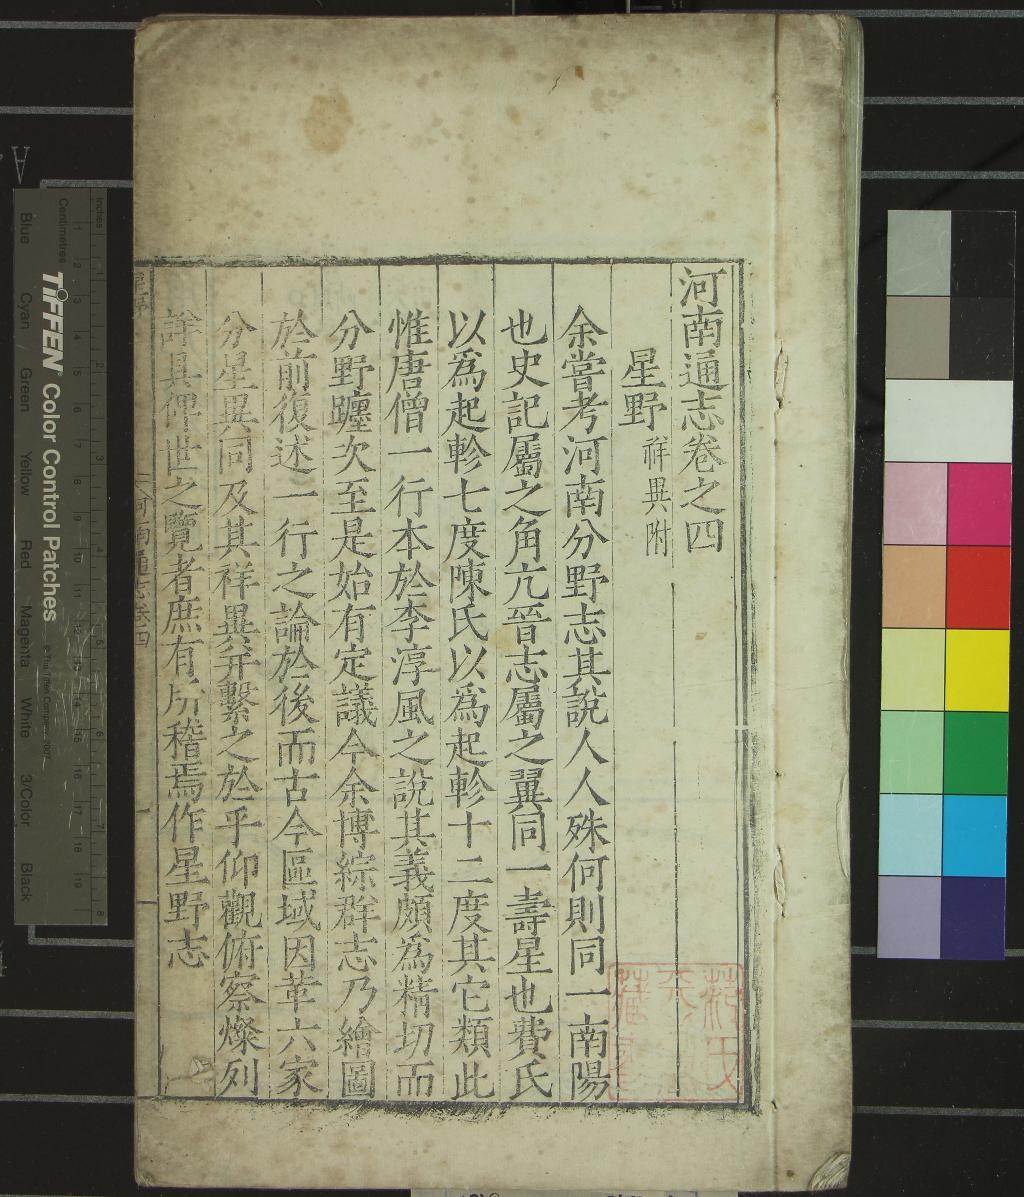 河南通志卷之四
星野 祥異附
余嘗考河南分野志其說人人殊何則同一南陽
也史記屬之角亢晉志屬之翼同一壽星也費氏
以為起軫七度陳氏以為起軫十二度其它類此
惟唐僧一行本於李淳風之說其義頗為精切而
分野躔次至是始有定議今余博綜群志乃繪圖
於前復述一行之論於後而古今區域因革六家
分星異同及其祥異并繫之於乎仰觀俯察燦列
詳具俾世之覽者庶有所稽焉作星野志
河南通志卷四
Inches
Centimetres
TIFFEN Color Control Patches
Blue
Cyan
Green
Yellow
Red
Magenta
White
3/Color
Black